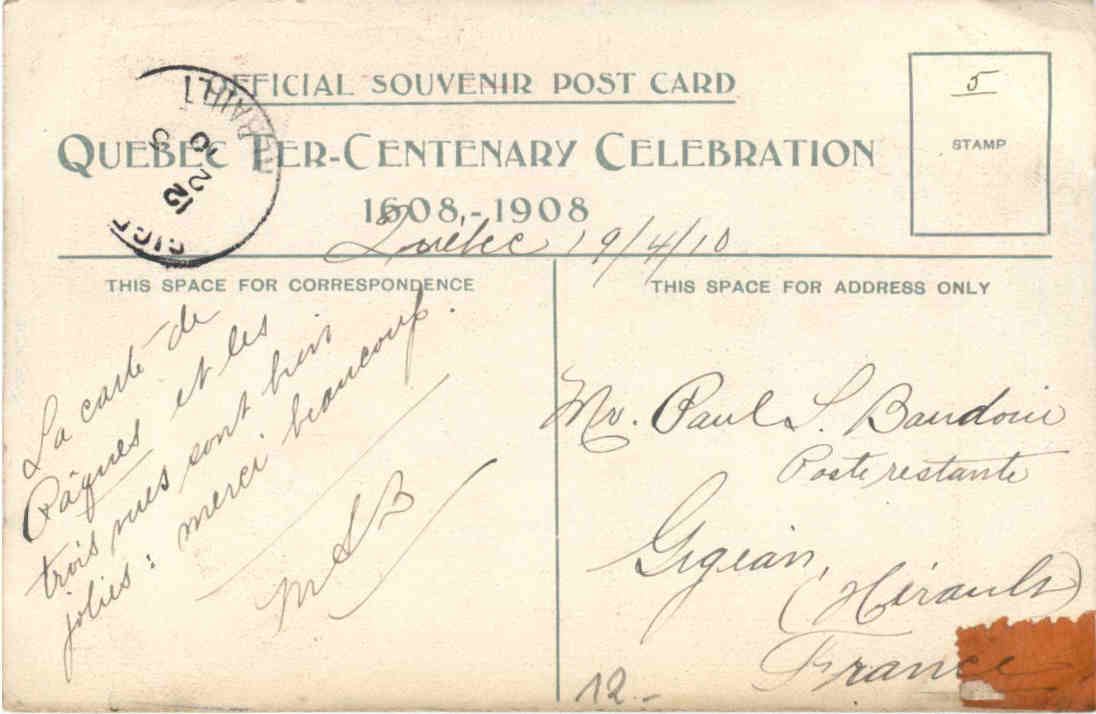 OFFICIAL SOUVENIR POST CARD
QUEBEC TER-CENTENARY CELEBRATION
1608-1908
5
STAMP
Québec 19/4/10
THIS SPACE FOR CORRESPONDENCE
La carte de
Pâques et les
trois vues sont bien
jolies : merci beaucoup.
M S B
THIS SPACE FOR ADDRESS ONLY
Mr. Paul S. Baudouin
Poste restante
Gigean,
(Hérault)
France
12.-